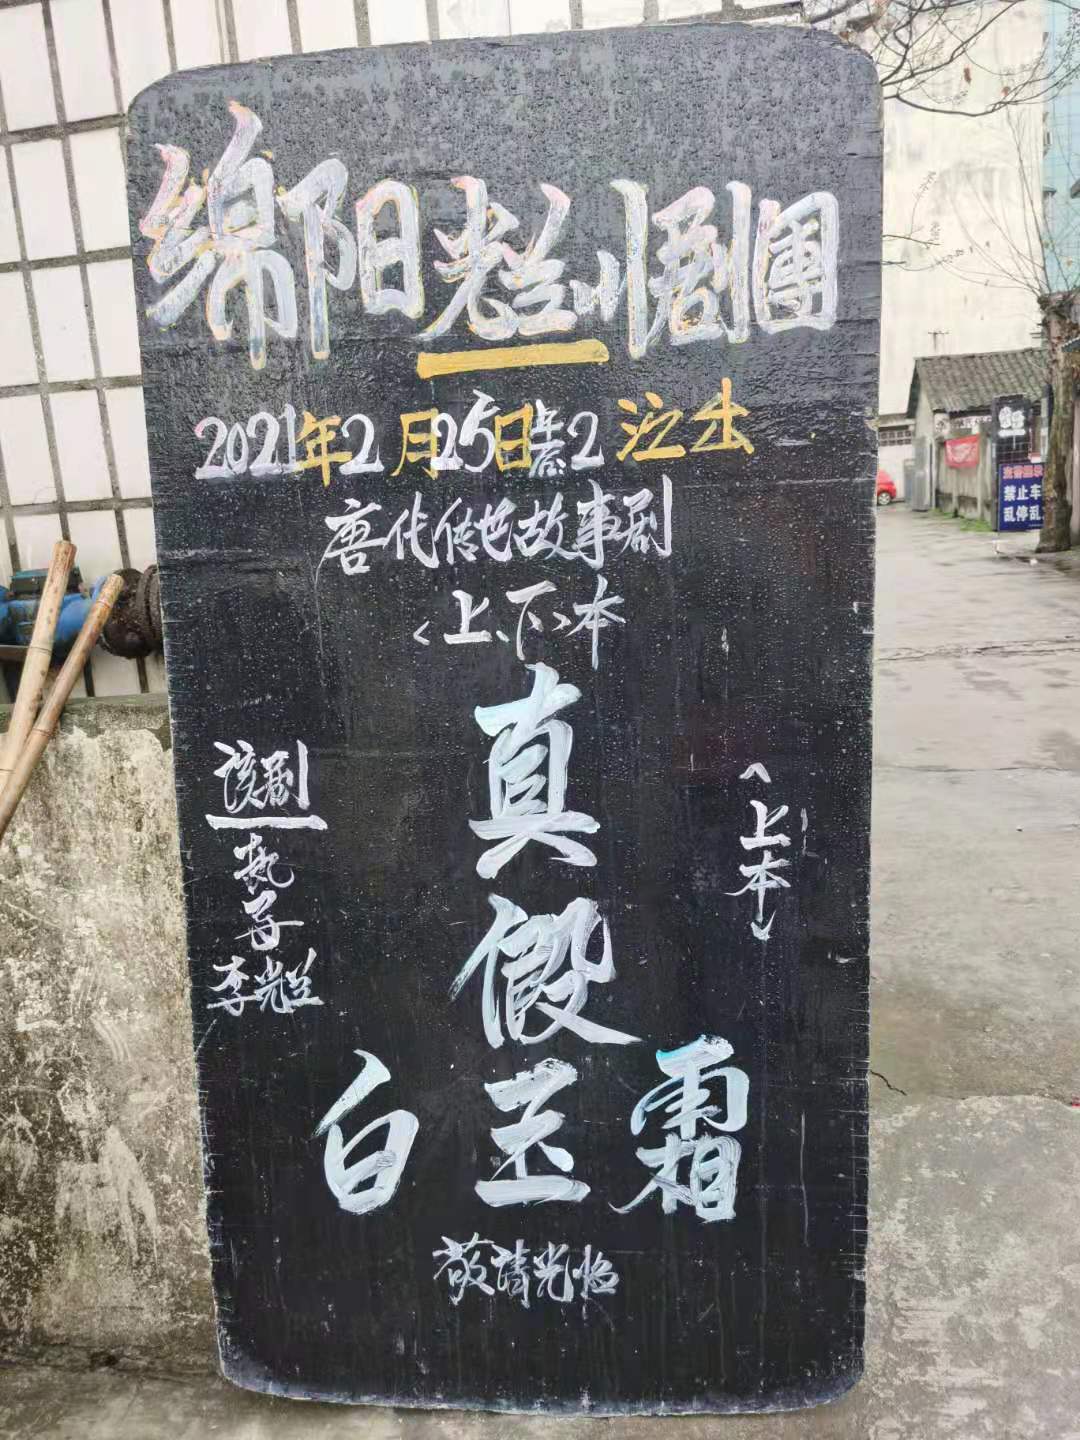 绵阳光兰川剧團
2021年2月25日午后2 演出
唐代传奇故事剧
<上、下>本
真假
白玉霜
<上本>
该剧
执导
李光兰
敬請光临
禁止车
乱停乱